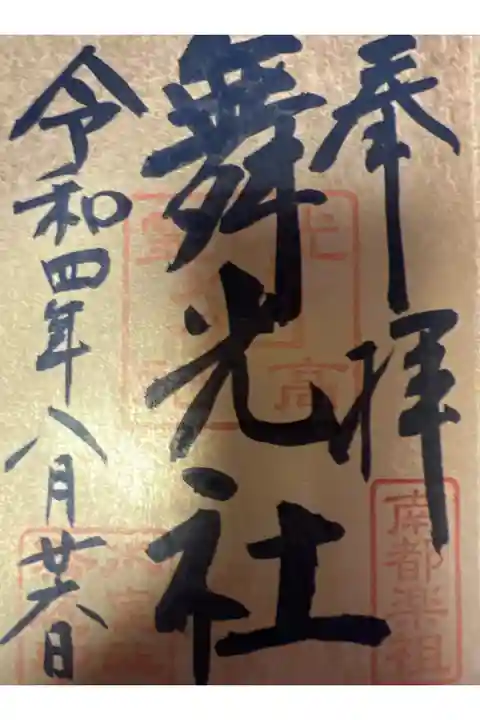 奉拝
舞光社
令和四年八月廿六日
南都楽祖